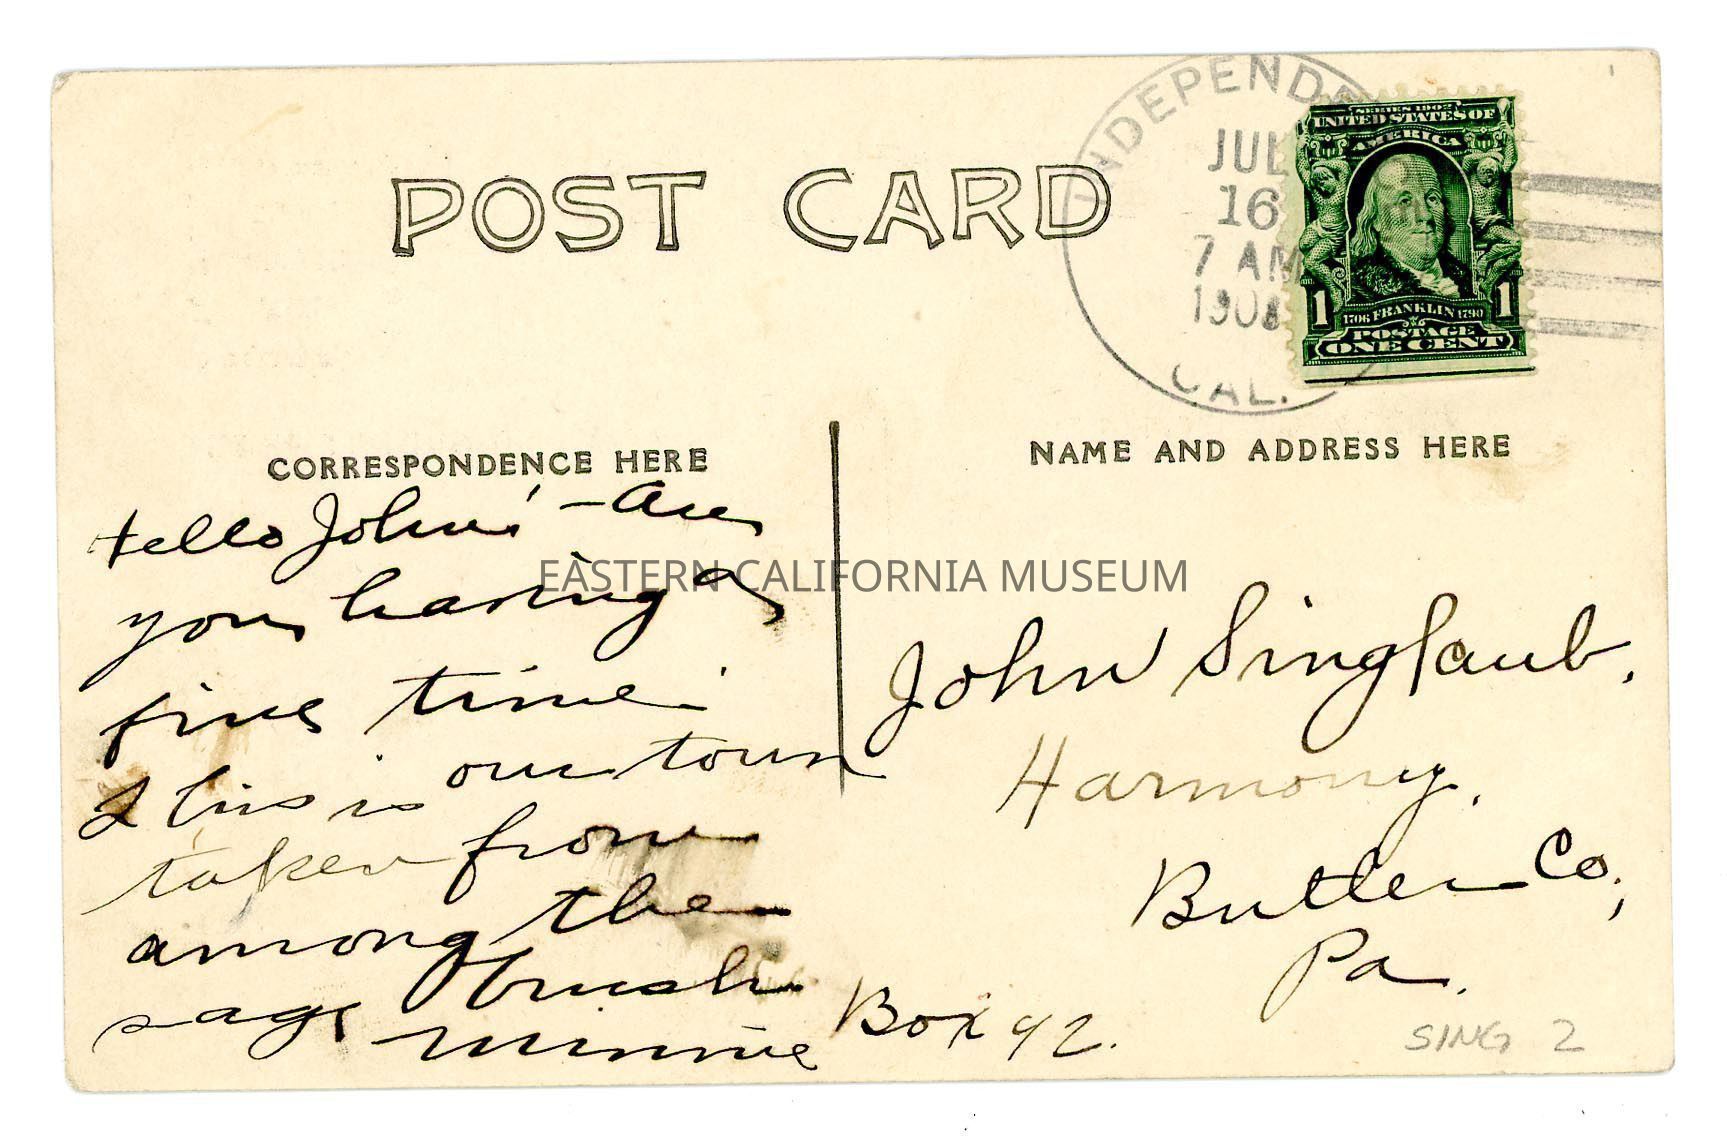 POST CARD
INDEPENDE
JUL
16
7 AM
1908
CAL.
SERIES 1902
UNITED STATES OF
AMERICA
1 1706 FRANKLIN 1790 1
POSTAGE
ONE CENT
CORRESPONDENCE HERE
Hello John! - are
you having a
fine time.
This is our town
taken from
among the
sage brush
Minnie
NAME AND ADDRESS HERE
John Singlaub.
Harmony.
Butler Co.,
Pa.
Box 92.
SING 2
EASTERN CALIFORNIA MUSEUM